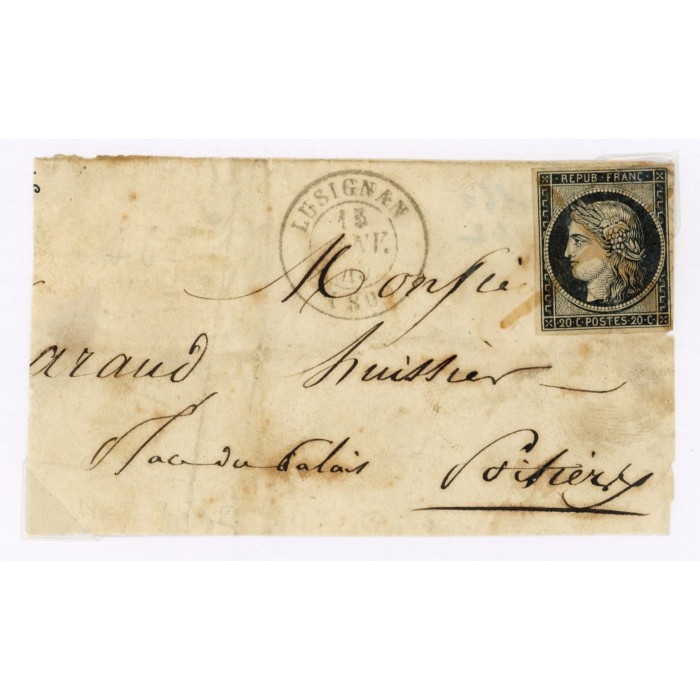 LUSIGNAN
15
REPUB·FRANC·
20·C·POSTES·20·C·
Monsie
araud huissier
Place du Palais Poitiers